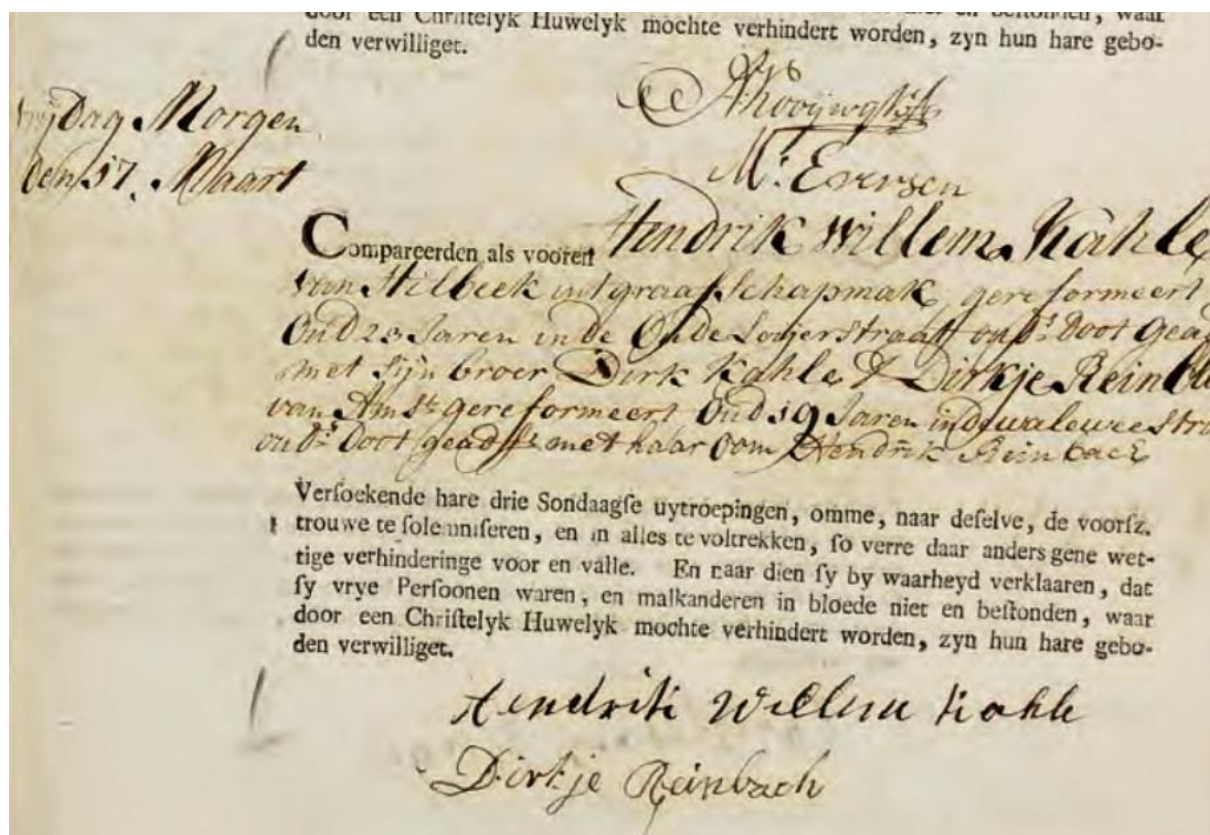 door een Christelyk Huwelyk mochte verhindert worden, zyn hun hare gebo-
den verwilliget.
Vrijdag Morgen
den 17. Maart
Mr. Eversen
Compareerden als vooren Hendrik Willem Kahle
van Hilbeek int graafschap mak, gereformeert
Oud 23 Jaren in de Oude Looijerstraat oud.s doot Geads
met sijn broer Dirk Kahle & Dirkje Reinba
van Amst. gereformeert Oud 19 Jaren in de
oud.s doot geadst. met haar Oom Hendrik Reinbach
Versoekende hare drie Sondaagse uytroepingen, omme, naar deselve, de voorsz.
trouwe te solemniseren, en in alles te voltrekken, so verre daar anders gene wet-
tige verhinderinge voor en valle. En naar dien sy by waarheyd verklaaren, dat
sy vrye Persoonen waren, en malkanderen in bloede niet en bestonden, waar
door een Christelyk Huwelyk mochte verhindert worden, zyn hun hare gebo-
den verwilliget.
Hendrik Willem Kahle
Dirkje Reinbach